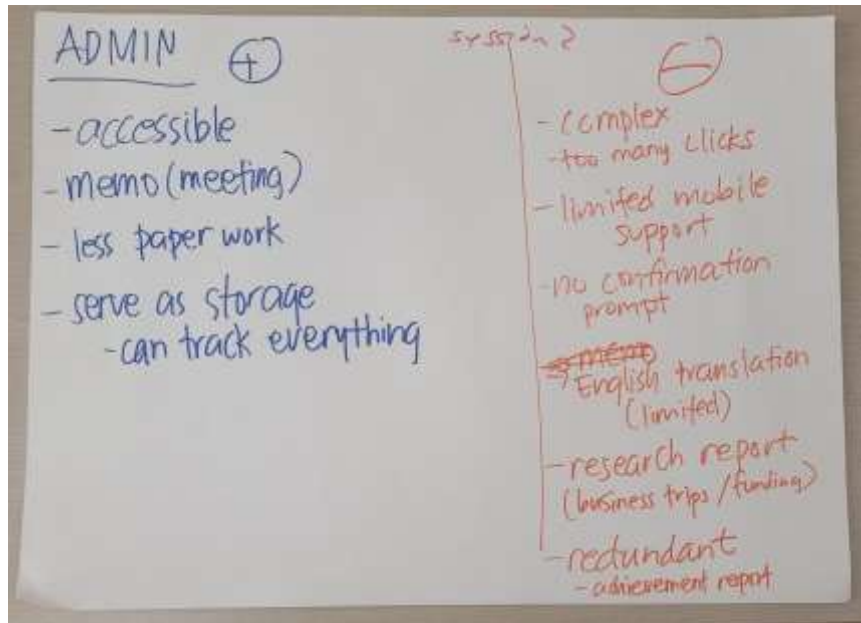 ADMIN +
- accessible
- memo (meeting)
- less paper work
- serve as storage
- can track everything
2
−
- complex
- too many clicks
- limited mobile
support
- no confirmation
prompt
English translation
(limited)
- research report
(business trips / funding)
- redundant
- achievement report